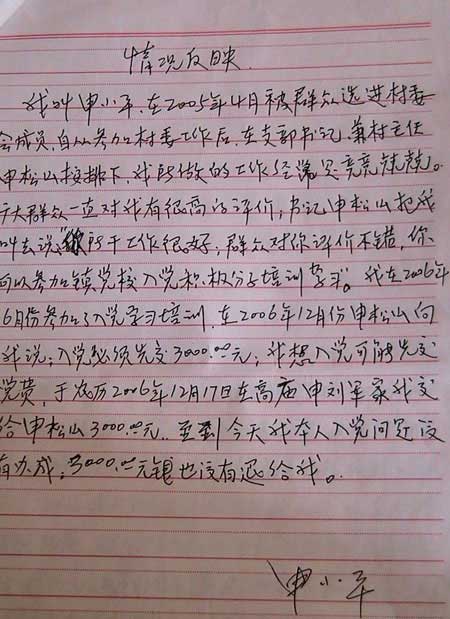 情况反映
我叫申小平,在2005年4月被群众选进村委
会成员,自从参加村委工作后,在支部书记兼村主任
申松山按排下,我所做的工作经常是兢兢业业。
广大群众一直对我有很高的评价,书记申松山把我
叫去说"你所干工作很好,群众对你评价不错,你
可以参加镇党校入党积极分子培训学习"。我在2006年
6月份参加了入党学习培训,在2006年12月份申松山向
我说:入党必须先交3000.00元,我想入党可能先交
党费,于农历2006年12月17日在高庙申刘军家我交
给申松山3000.00元..至到今天我本人入党问题没
有办成,3000.00元钱也没有退给我。
申小平